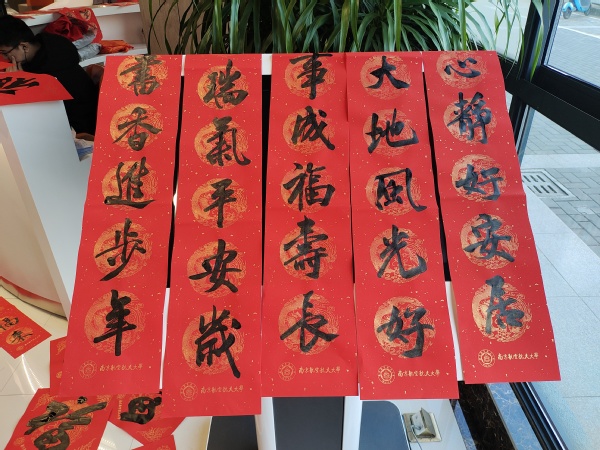 心靜好安居
大地風光好
事成福壽長
瑞氣平安歲
書香進步年
南京航空航天大學
南京航空航天大學
南京航空航天大學
南京航空航天大學
南京航空航天大學